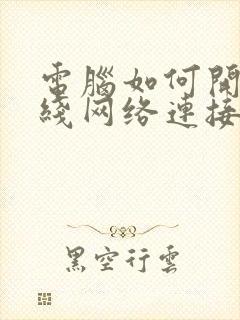 電腦如何開
綫网络連接
黑空行雲